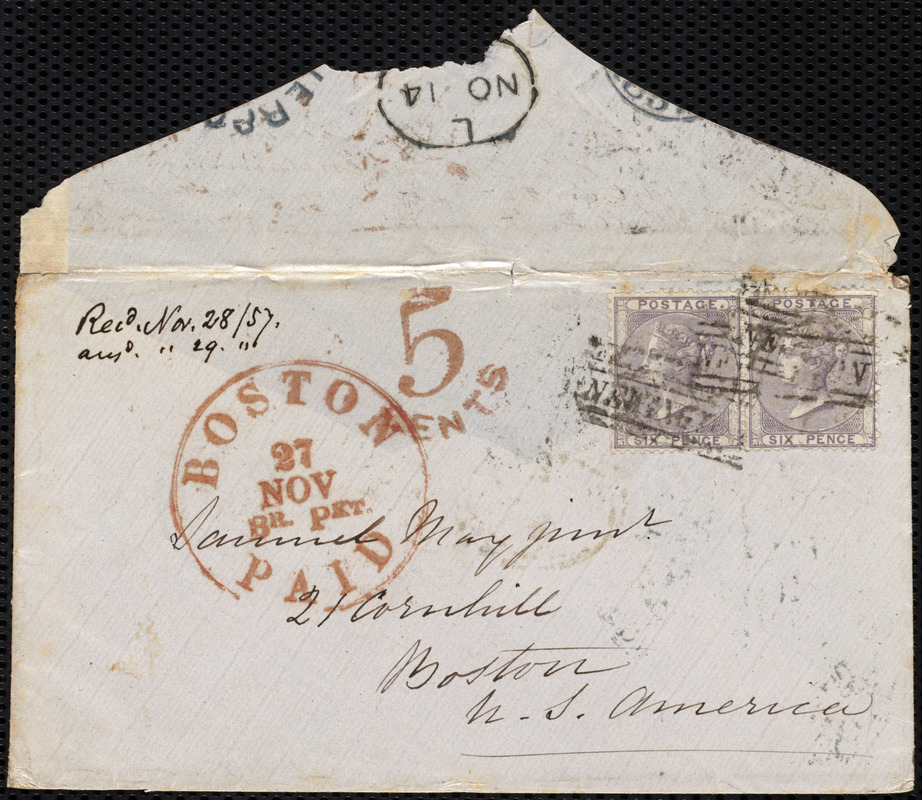 NO 14
L
Recd. Nov. 28/57.
ansd. " 29. "
5
CENTS
BOSTON
27
NOV
BR. PKT.
PAID
POSTAGE
SIX PENCE
POSTAGE
SIX PENCE
Samuel May junr.
21 Cornhill
Boston
U. S. America